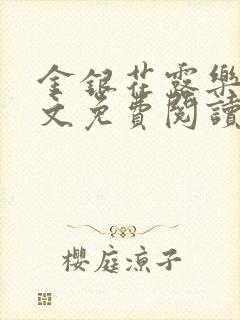 金銀花露樂
文免費閱讀
櫻庭涼子